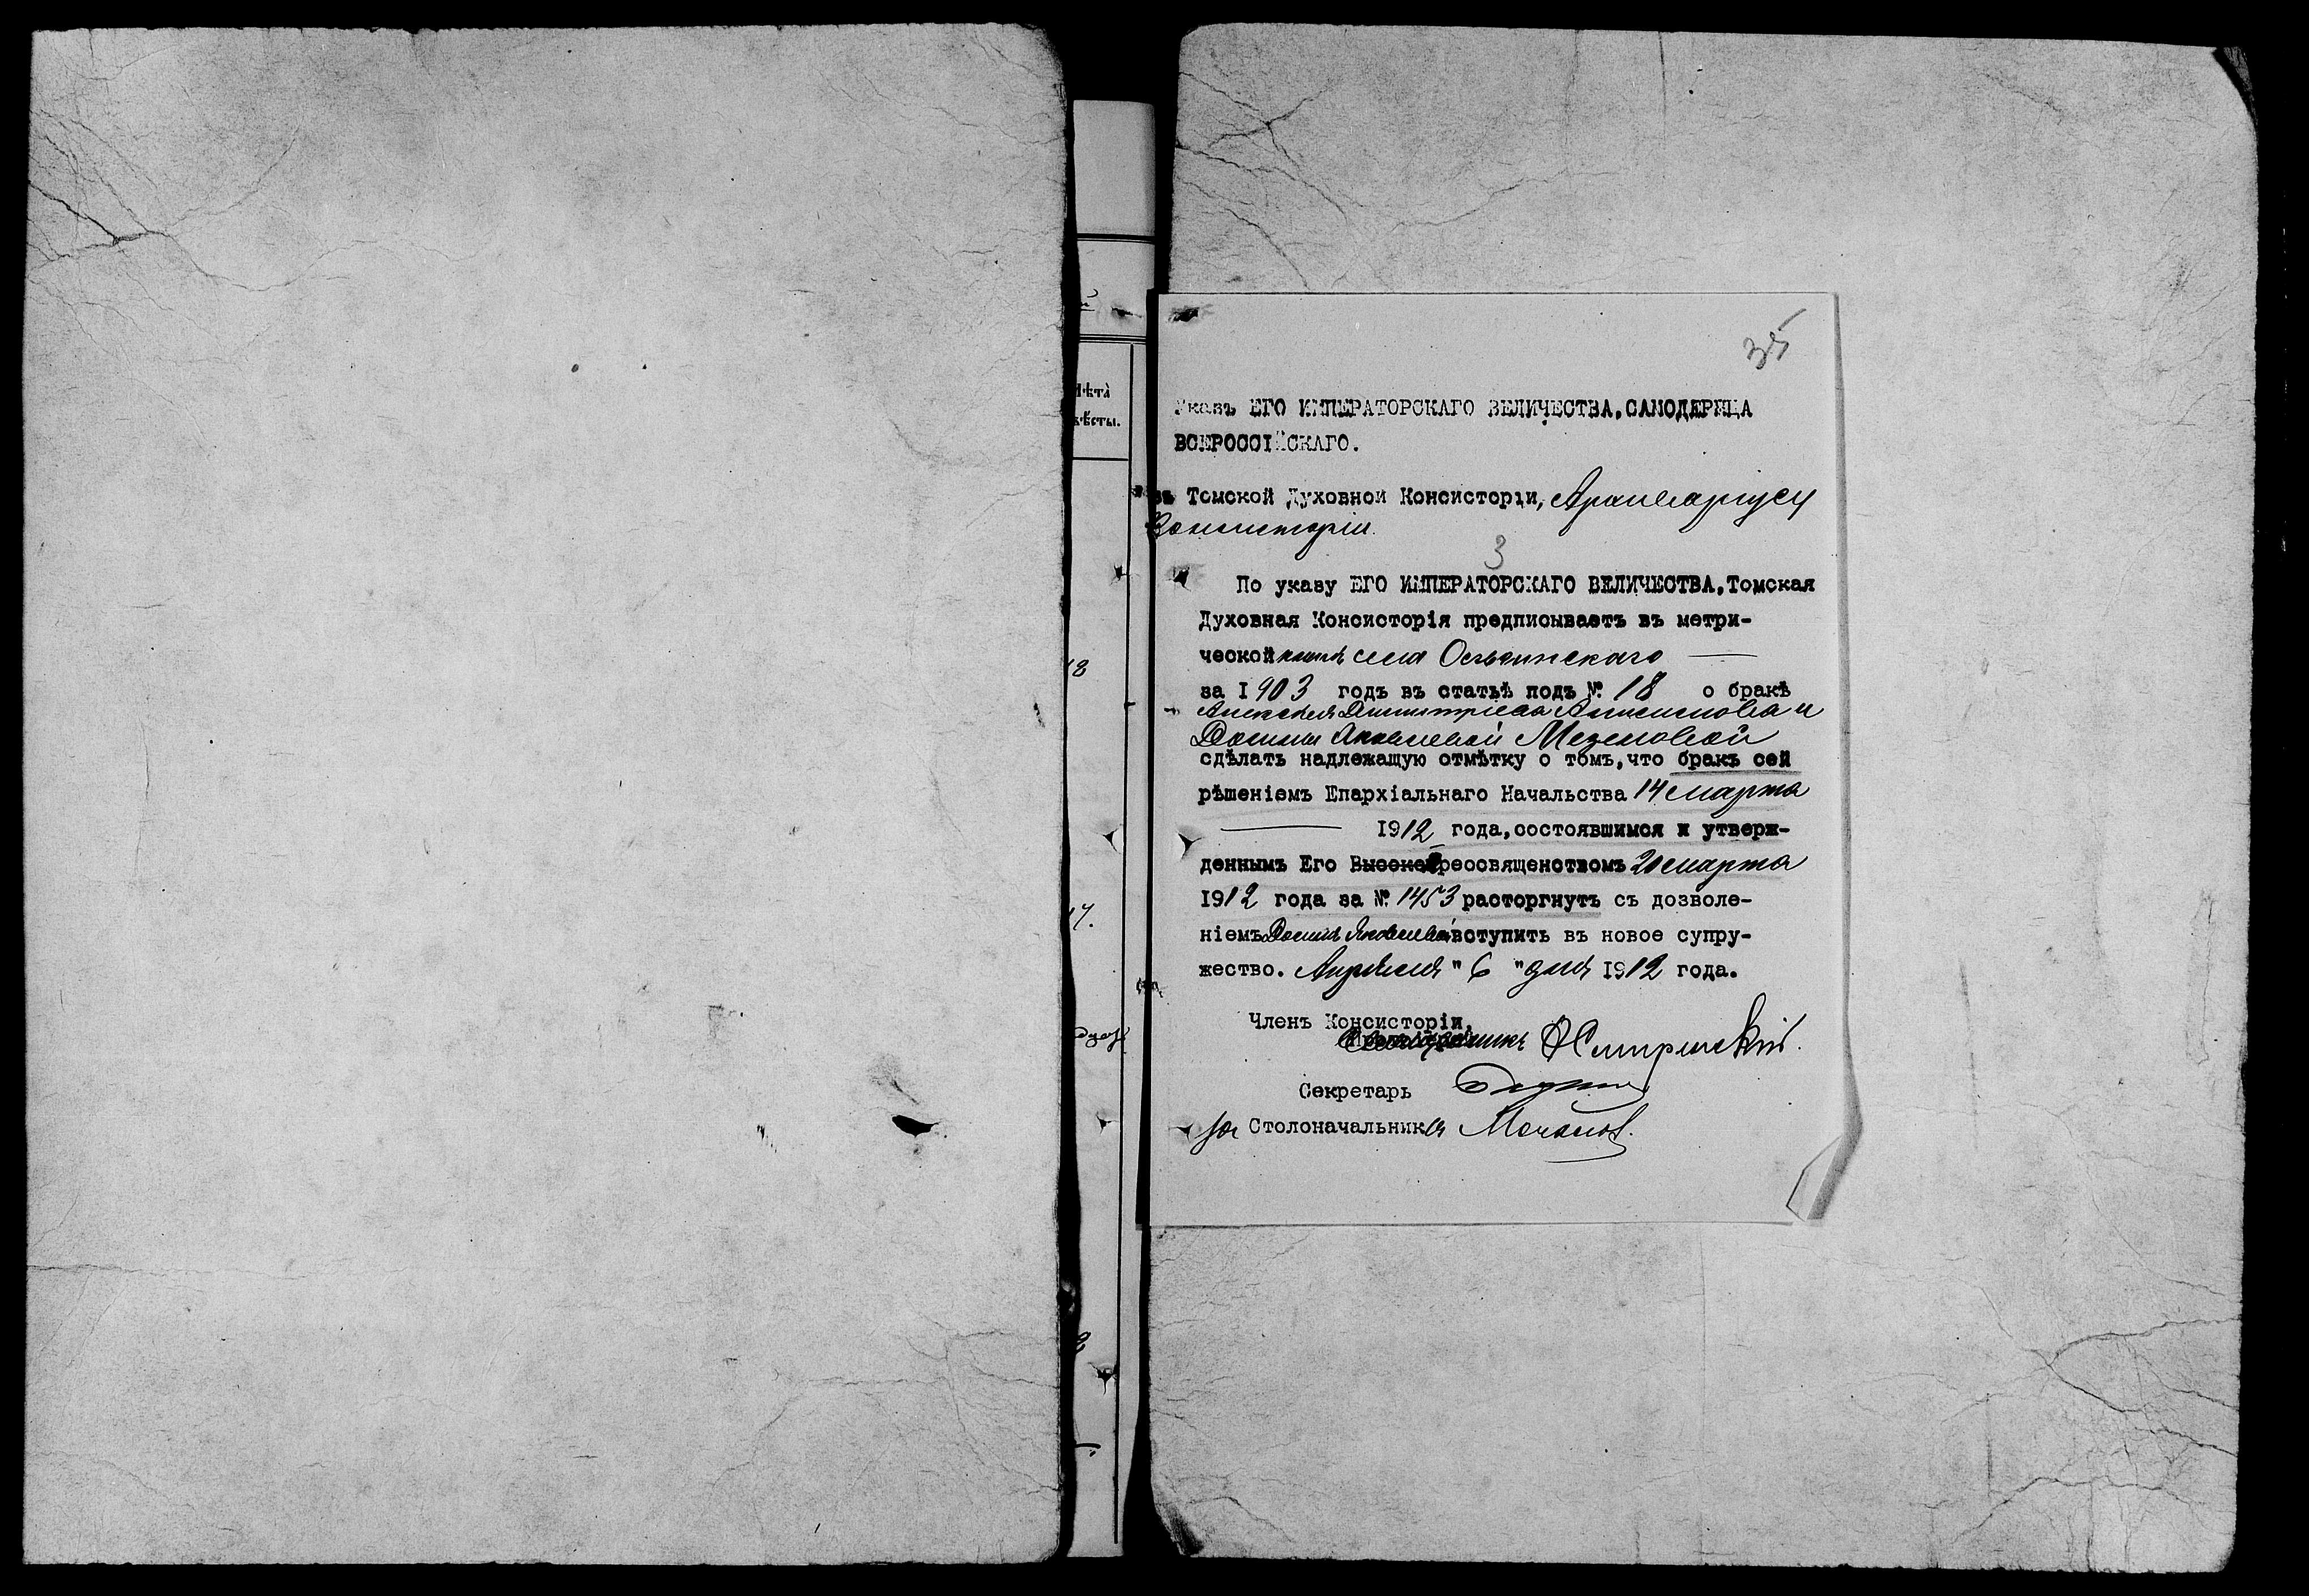 й
Лѣта
вѣсты.
18
17.
35
Указъ ЕГО ИМПЕРАТОРСКАГО ВЕЛИЧЕСТВА, САМОДЕРЖЦА
ВСЕРОССІЙСКАГО.
изъ Томской Духовной Консисторіи, Архиваріусу
Консисторіи.
3
По указу ЕГО ИМПЕРАТОРСКАГО ВЕЛИЧЕСТВА, Томская
Духовная Консисторія предписываетъ въ метри-
ческой книгѣ села
за 1903 годъ въ статьѣ подъ № 18 о бракѣ
Алексѣя Димитріева Анисимова и
Домны Яковлевой Мезеновой
сдѣлать надлежащую отмѣтку о томъ, что бракъ сей
рѣшеніемъ Епархіальнаго Начальства 14 марта
1912 года, состоявшимся и утверж-
деннымъ Его Высокопреосвященствомъ 20 марта
1912 года за № 1453 расторгнутъ съ дозволе-
ніемъ Домнѣ Яковлевой вступить въ новое супру-
жество. Апрѣля "6" дня 1912 года.
Членъ Консисторіи,
Священникъ
Секретарь
за Столоначальника Мочалов.